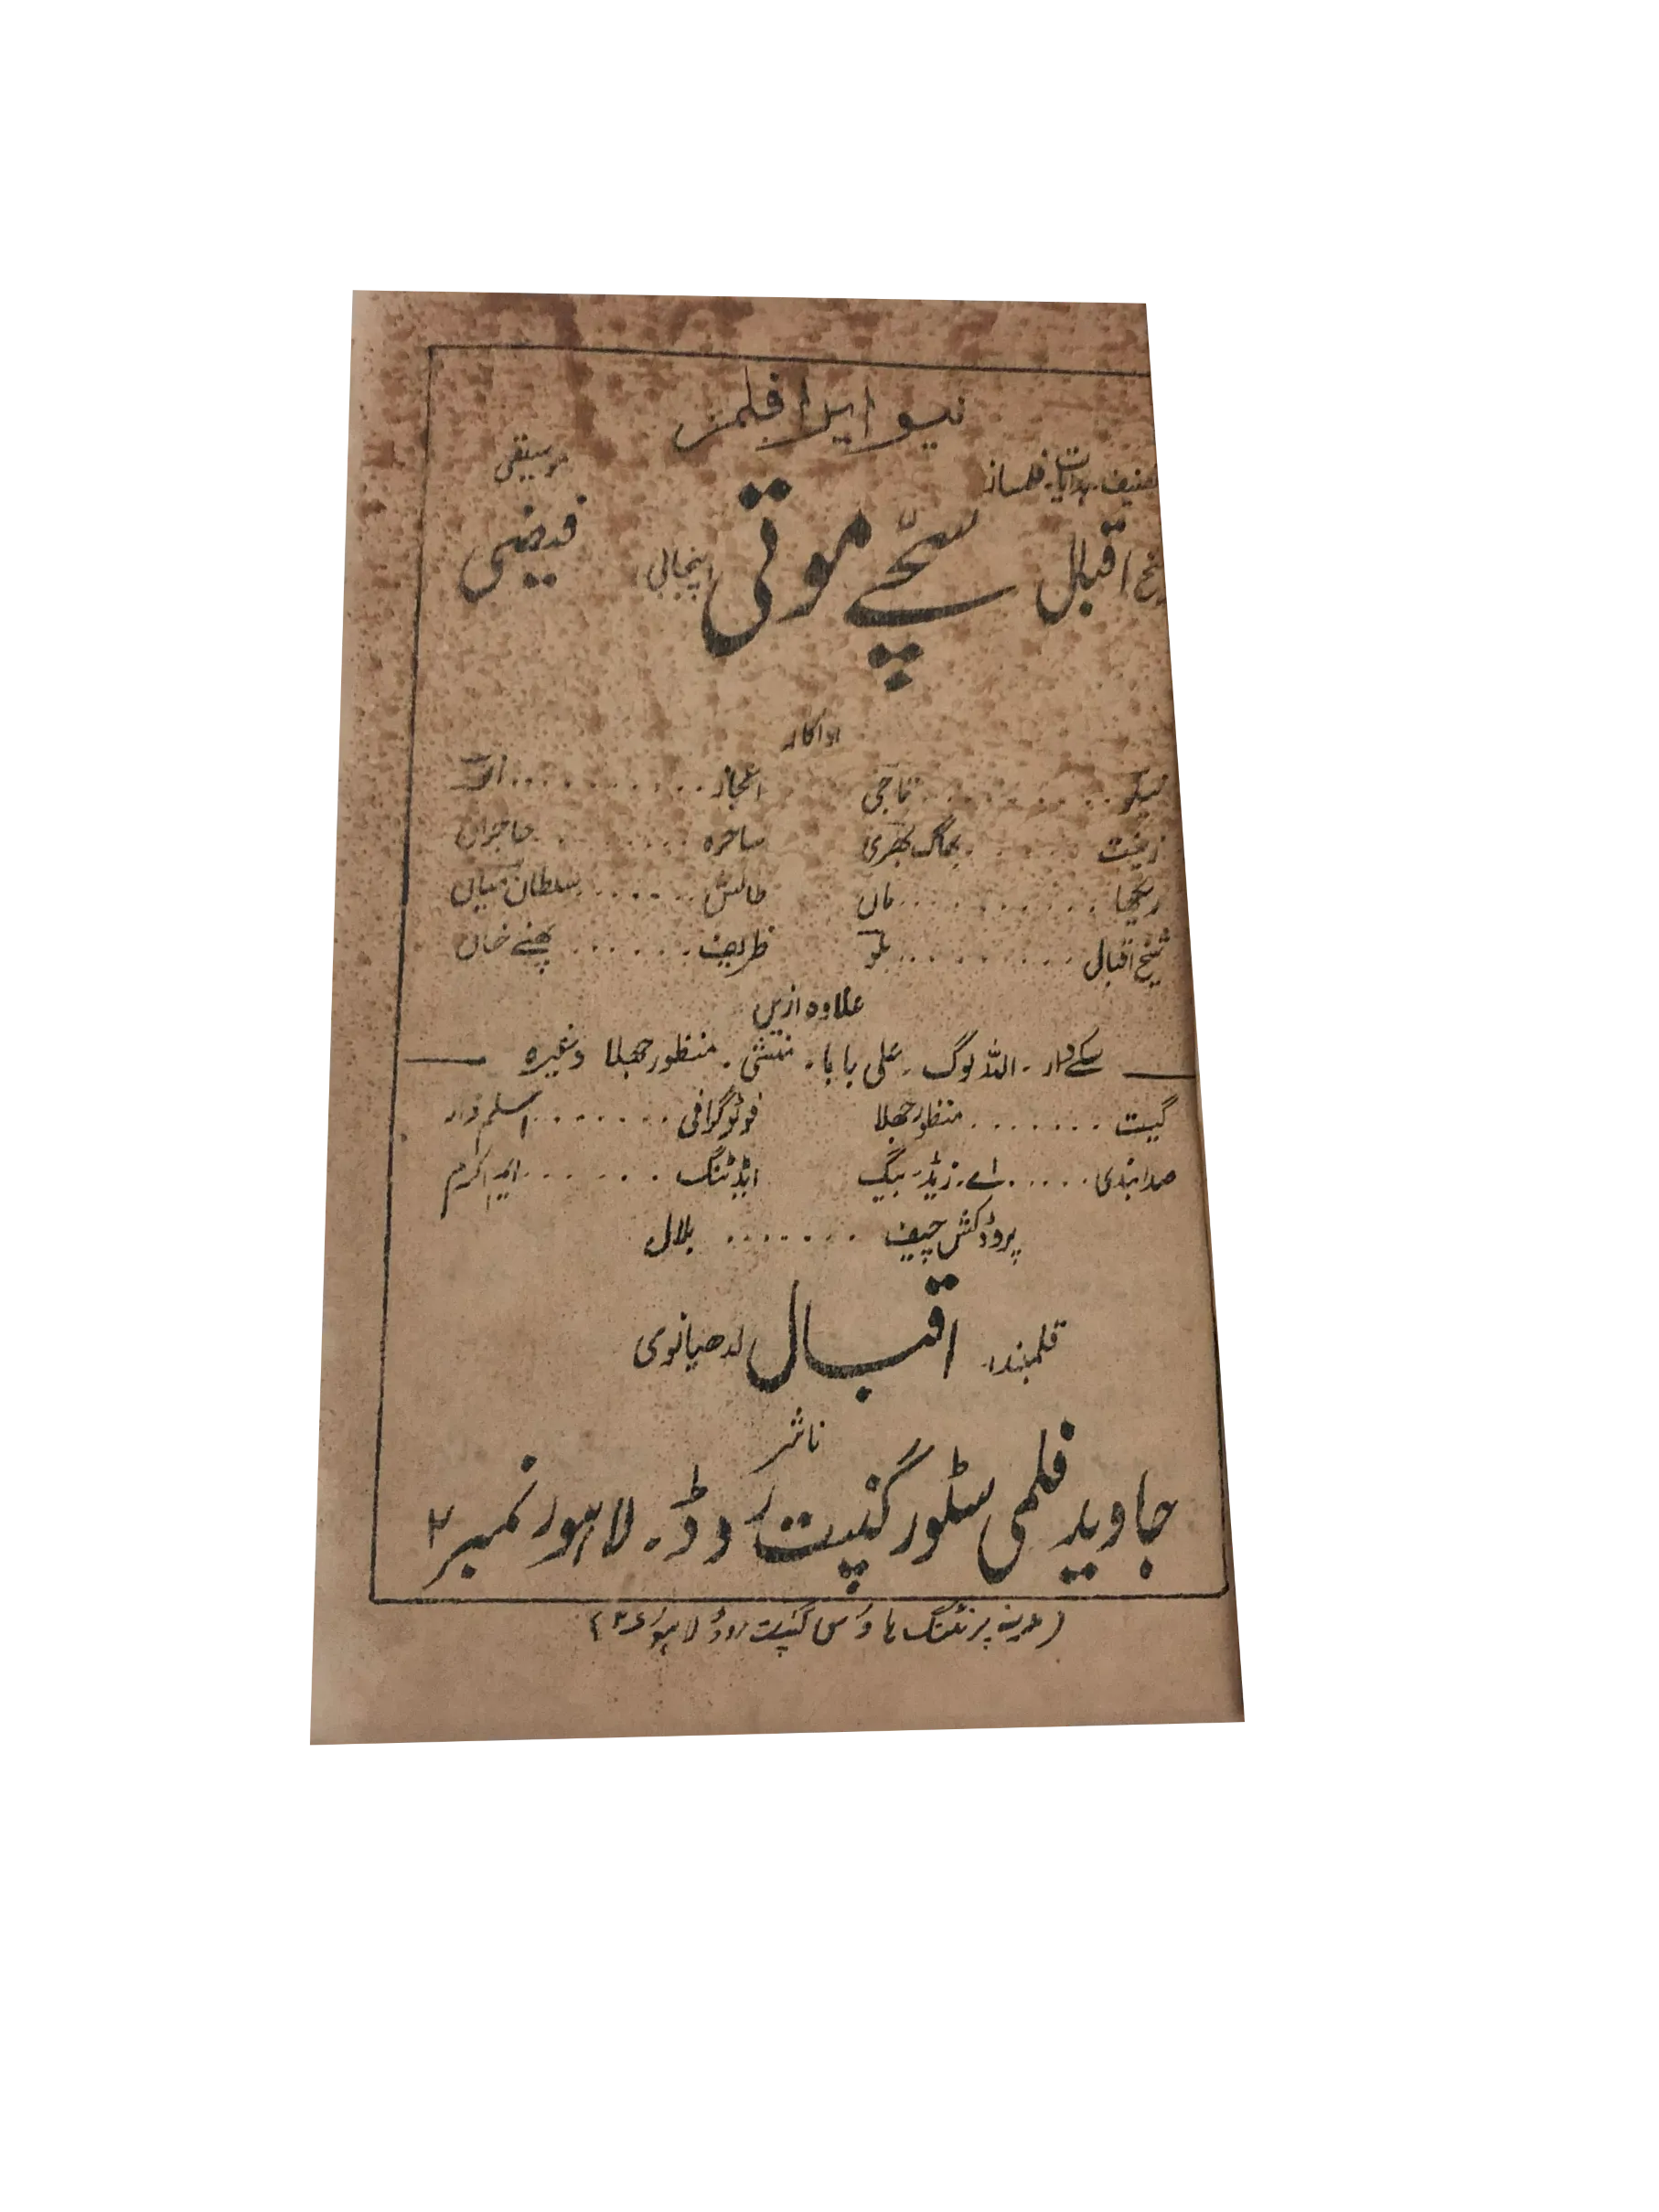 نیو ایرا فلمز
ہدایات۔ فسانہ
موسیقی
اقبال
سچّے موتی
پنجابی
فیضی
اداکار
نیلو ......... تاجی
اعجاز ..........
زینت ...... بھاگ بھری
ساحرہ ........ حاجراں
ریکھا .......... ماں
طالش ...... سلطان میاں
شیخ اقبال ......... بلو
ظریف ...... پھنے خاں
علاوہ ازیں
سکے دار۔ اللہ لوگ۔ علی بابا۔ منشی۔ منظور جھلا وغیرہ
گیت ....... منظور جھلا
فوٹوگرافی ....... اسلم ڈار
صدابندی ..... اے۔ زیڈ۔ بیگ
ایڈٹنگ ...... ایم اکرم
پروڈکشن چیف ....... بلال
قلمبند۔ اقبال لدھیانوی
ناشر
جاوید فلمی سٹور گنپت روڈ۔ لاہور نمبر ۲
پرنٹنگ ہاؤس گنپت روڈ لاہور